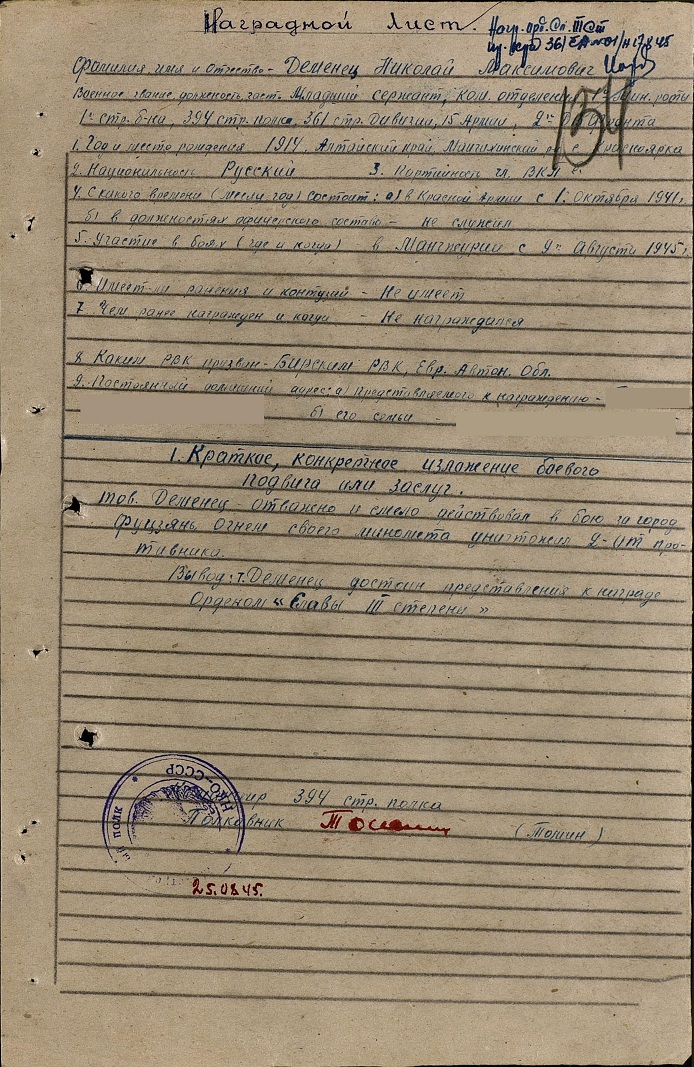 Наградной Лист.
Нагр. орд. Сл. III Ст
пр. 361 СД №01/н 17.9.45
Фамилия, имя и Отчество - Деменец Николай Максимович
Военное звание, должность, часть Младший сержант, ком. отделения мин. роты
1го стр. б-на, 394 стр. полка, 361 стр. Дивизии, 15 Армии, 2го Д.В. фронта
134
1. Год и место рождения 1914, Алтайский край, Красноярка
2. Национальность Русский 3. Партийность чл. ВКП
4. С какого времени (месяц год) состоит: а) в Красной Армии с 1. Октября 1941 г.
б) в должностях офицерского состава - не служил
5. Участие в боях (где и когда) в Манчжурии с 9го Августа 1945 г.
6. Имеет-ли ранения и контузии - Не имеет
7. Чем ранее награжден и когда - Не награждался
8. Каким РВК призван - Бирским РВК, Евр. Автон. Обл.
9. Постоянный домашний адрес: а) Представляемого к награждению -
б) его семьи -
1. Краткое, конкретное изложение боевого
подвига или заслуг.
тов. Деменец - отважно и смело действовал в бою за город
Фуцзянь огнем своего миномета уничтожил 2-ит про-
тивника.
Вывод: т. Деменец достоин представления к награде
Орденом "Славы III степени"
394 стр. полка
Полковник (Томин)
НКО-СССР
ПОЛК
25.08.45.